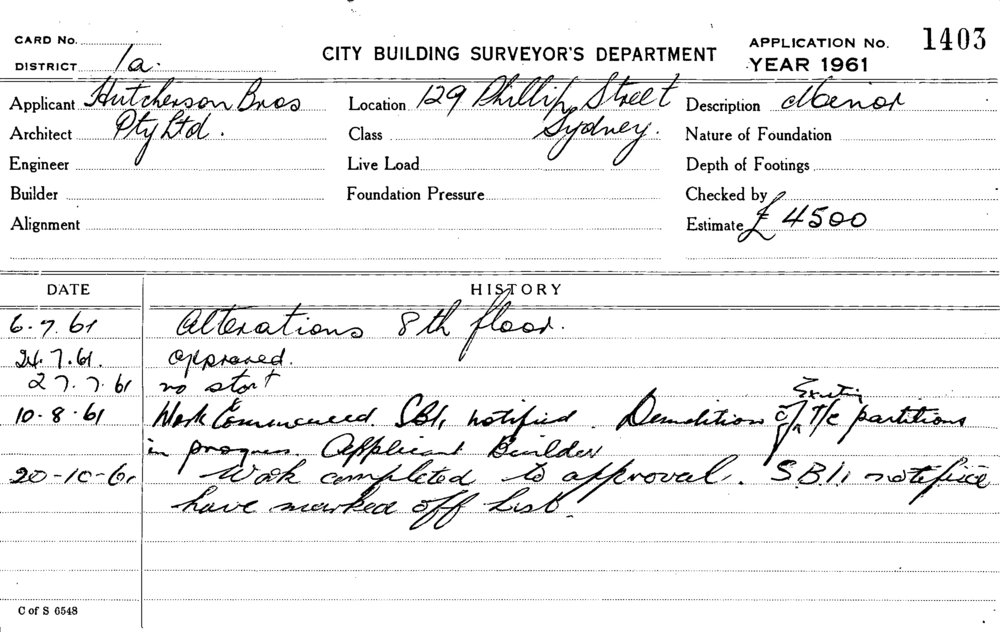 CARD No.
DISTRICT 1a.
CITY BUILDING SURVEYOR'S DEPARTMENT
APPLICATION No. 1403
YEAR 1961
Applicant Hutcherson Bros Location 129 Phillip Street Description Minor
Architect Pty Ltd. Class Sydney. Nature of Foundation
Engineer Live Load Depth of Footings
Builder Foundation Pressure Checked by
Alignment Estimate £4500
DATE HISTORY
6.7.61 Alterations 8th floor.
24.7.61. approved.
27.7.61 no start
10-8-61 Work Commenced. SBI, notified. Demolition of Existing T/C partitions
in progress. Applicant Builder
20-10-61 Work completed to approval. S.B.I. notified
have marked off List.
C of S 6548